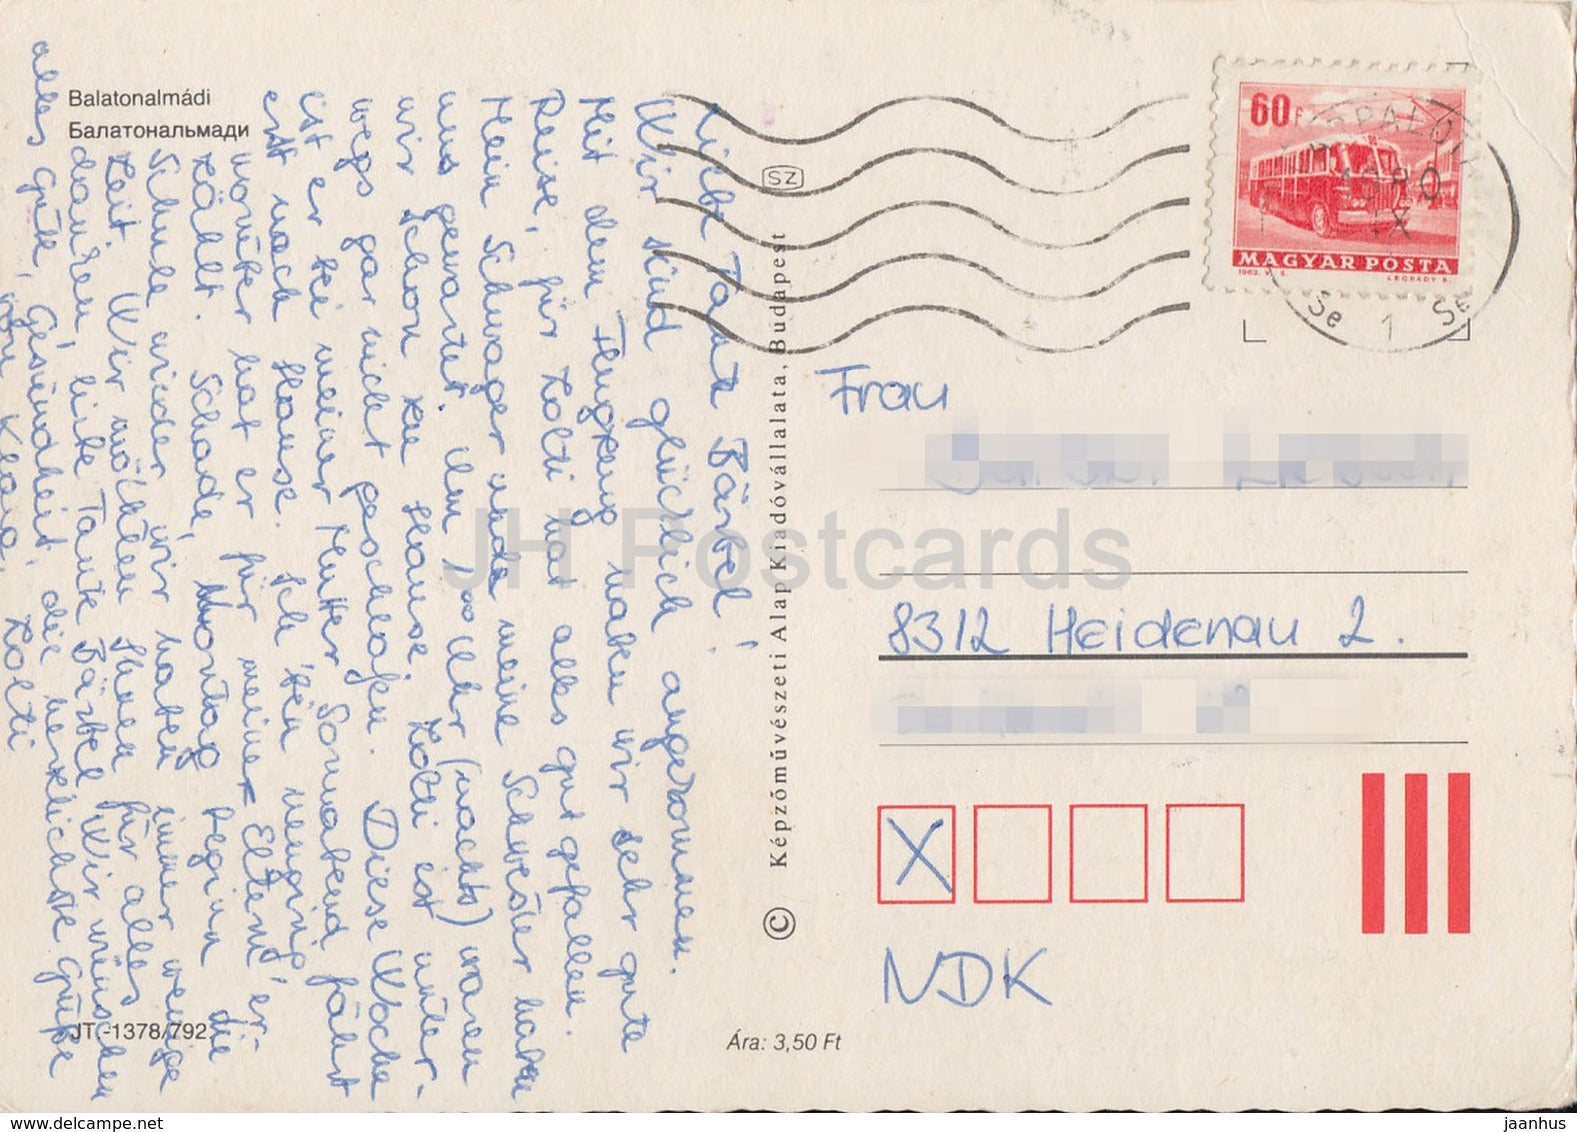 Balatonalmádi
Балатональмади
Liebe Tante Bärbel!
Wir sind glücklich angekommen.
Mit dem Flugzeug haben wir sehr gute
Reise, für Zolti hat alles gut gefallen.
Mein Schwager und meine Schwester haben
uns gewartet. Um Uhr (nachts) waren
wir schon zu Hause. Zolti ist unter-
wegs gar nicht geschlafen. Diese Woche
ist er bei meiner Mutter Sonnabend fährt
erst nach Hause. Ich bin neugirig,
worüber hat er für meiner Eltern er-
zählt. Schade, Montag beginn die
Schule wieder wir haben immer wenige
Zeit. Wir möchten Ihnen für alles
danken, liebe Tante Bärbel Wir wünschen
alles gute, Gesundheit, die herzlichste Grüße
von Klara, Zolti
JT.-1378/792
Ára: 3,50 Ft
SZ
© Képzőművészeti Alap Kiadóvállalata, Budapest
60f
MAGYAR POSTA
LÉGRÁDY S.
1980
IX
Se 1 Se
Frau
8312 Heidenau 2.
X
NDK
JH Postcards
delcampe.net
jaanhus